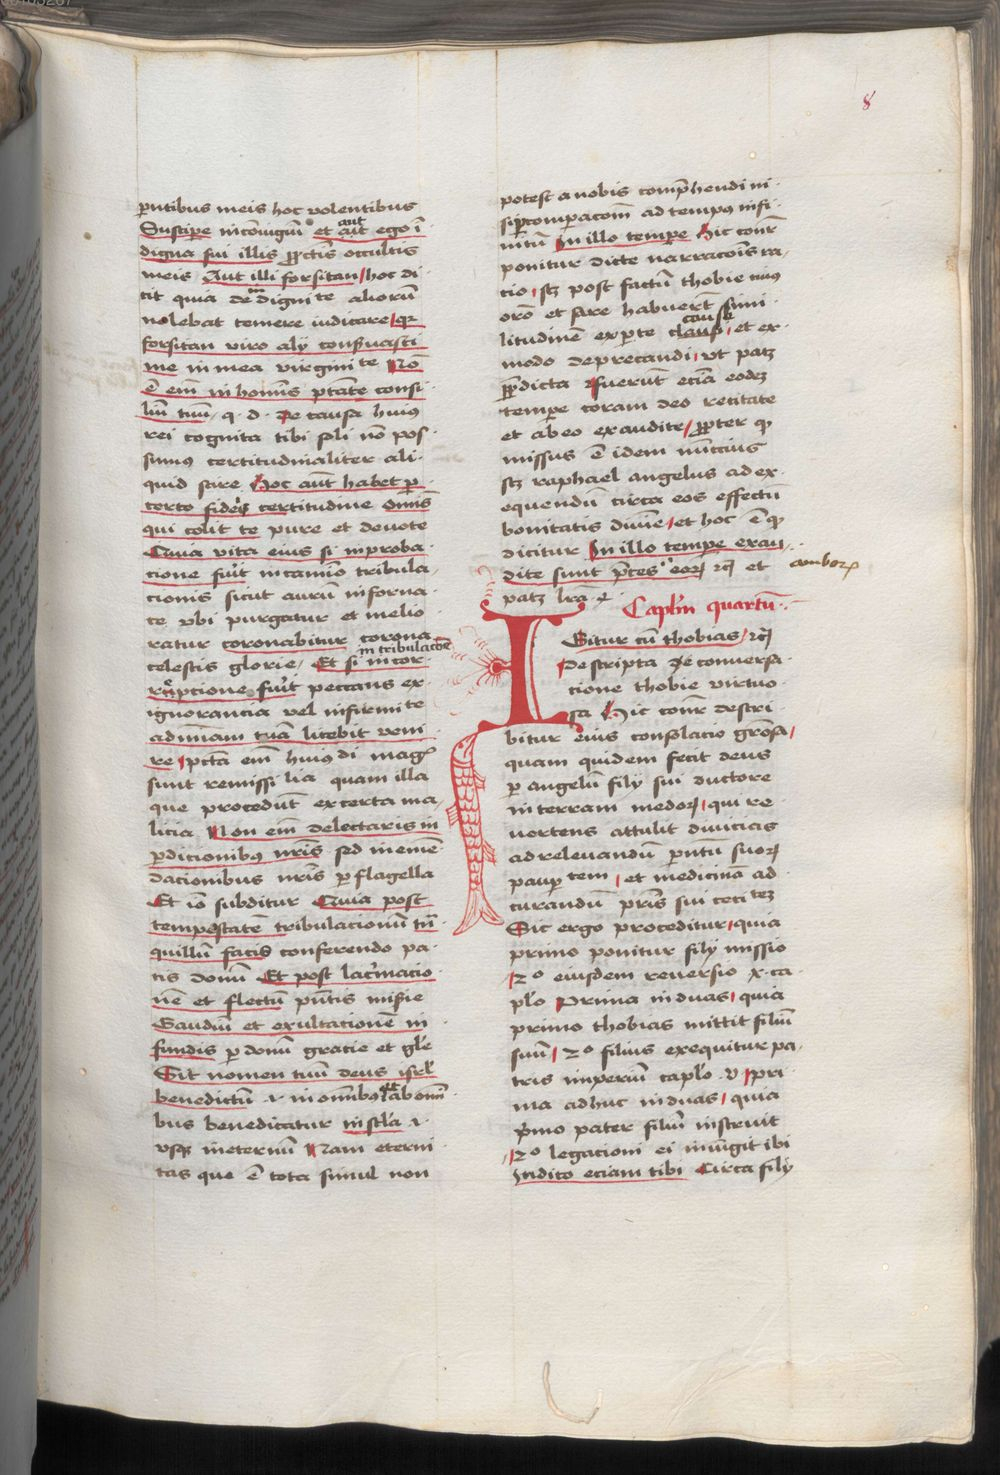 8
pntibus meis hoc volentibus
Suscipe in coniugiū et aut ego ī
digna fui illis ꝓ pctīs occultis
meis Aut illi forsitan hoc di
cit quia de digni te aliorū
nolebat temere iudicare qz
forsitan viro alij conseruasti
me in mea virgini te Nō
ē em̄ in hoīnis ptāte consi
liū tuū q d de causa huius
rei cognita tibi soli nō pos
sumus certitudinaliter ali
quid scire Hoc aūt habet p
certo fidei certitudine omīs
qui colit te pure et deuote
Quia vita eius si in proba
cione fuit in camīo tribula
cionis sicut aurū in forna
ce vbi purgatur et melio
ratur coronabitur corona
in tribulacōe
celestis glorie Et si in cor
rupcione fuit peccans ex
ignorancia vel infirmi te
ad mīam tuā licebit veni
re pctā em̄ huius di mag
sunt remissi lia quam illa
que procedūt ex certa ma
licia Non em̄ delectaris in
pdicionibus nr̄is sed in emē
dacionibus nr̄is p flagella
Et iō subditur Quia post
tempestatē tribulacionū tn̄
quillū facis conferendo pa
cis donū Et post lacrimacio
nē et fletū
Gaudiū et exultacionē in
fundis p donū gracie et glē
Sit nomen tuū deus isrl
benedictū et in omībus ab omī
bus benedicatur in scl̄a
vsqz in eternū Nam eterni
tas que ē tota simul non
potest a nobis comprehendi ni
si p compacōem ad tempus infi
nitū In illo tempe Hic conr
ponitur dicte narracōis ra
cio sz post factū thobie cuius
orō et sare habuerūt simi
litudinē ex parte cause et ex
modo deprecandi vt patz
p̄dicta fuerūt eciā eodez
tempe coram deo recitate
et ab eo exaudite ꝓpter qd
missus ē idem nūccius
sz raphael angelus ad ex
equendū circa eos effectū
bonitatis diuīe et hoc ē qd
dicitur In illo tempe exau
dite sunt pces eorꝝ rc̄ et
amborꝝ
patz lrā
Caplm quartū
Igitur cū thobias rc̄
Descripta de conuersa
cione thobie virtuo
sa Hic conr descri
bitur eius consolacio grōsa
quam quidem fecit deus
p angelū filij sui ductore
in terram medorꝝ qui re
uertens attulit diuicias
ad releuandū pntū suorꝝ
paup tem et medicinā ad
curandū pr̄is sui ceci tez
Sic ergo proceditur quia
primo ponitur filij missio
2º eiusdem reuersio x ca
plo Prima in duas quia
primo thobias mittit filiū
suū 2º filius exequitur pa
tris imperiū caplo v pri
ma adhuc in duas quia
pmo pater filiū instruit
2º legacioni ei iniūgit ibi
Indico eciam tibi Circa filij